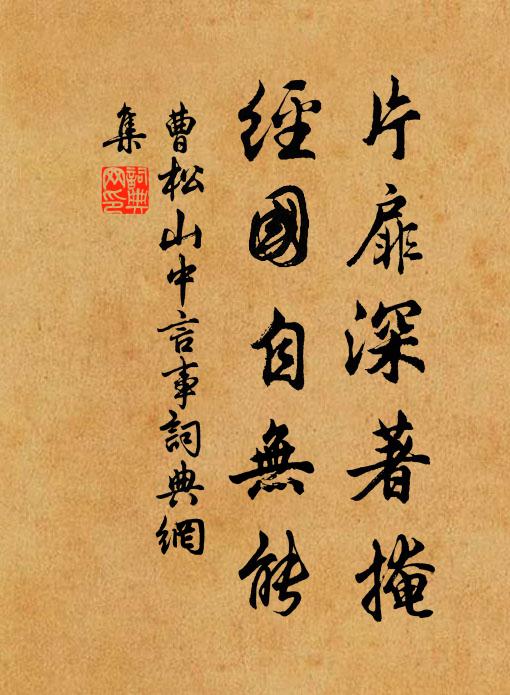 片扉深著掩
經國自無能
曹松山中言事詞典網
集
詞典網印